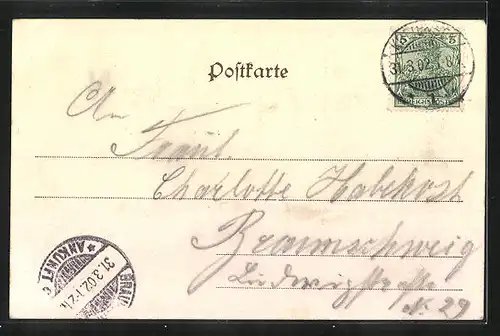 Postkarte
5 5
31.3.02
REICHSPOST
An
Fräul.
Charlotte Habekost
Braunschweig
Ludwigstraße
No. 29
BRAU
31.3.02.1-2N.
* ANKUNFT